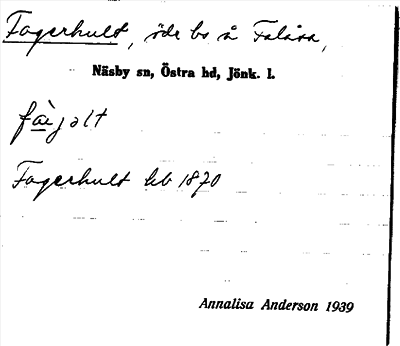 Fagerhult, öde bs å Falåsa,
Näsby sn, Östra hd, Jönk. l.
fàjəlt
Fagerhult hb 1870
Annalisa Anderson 1939